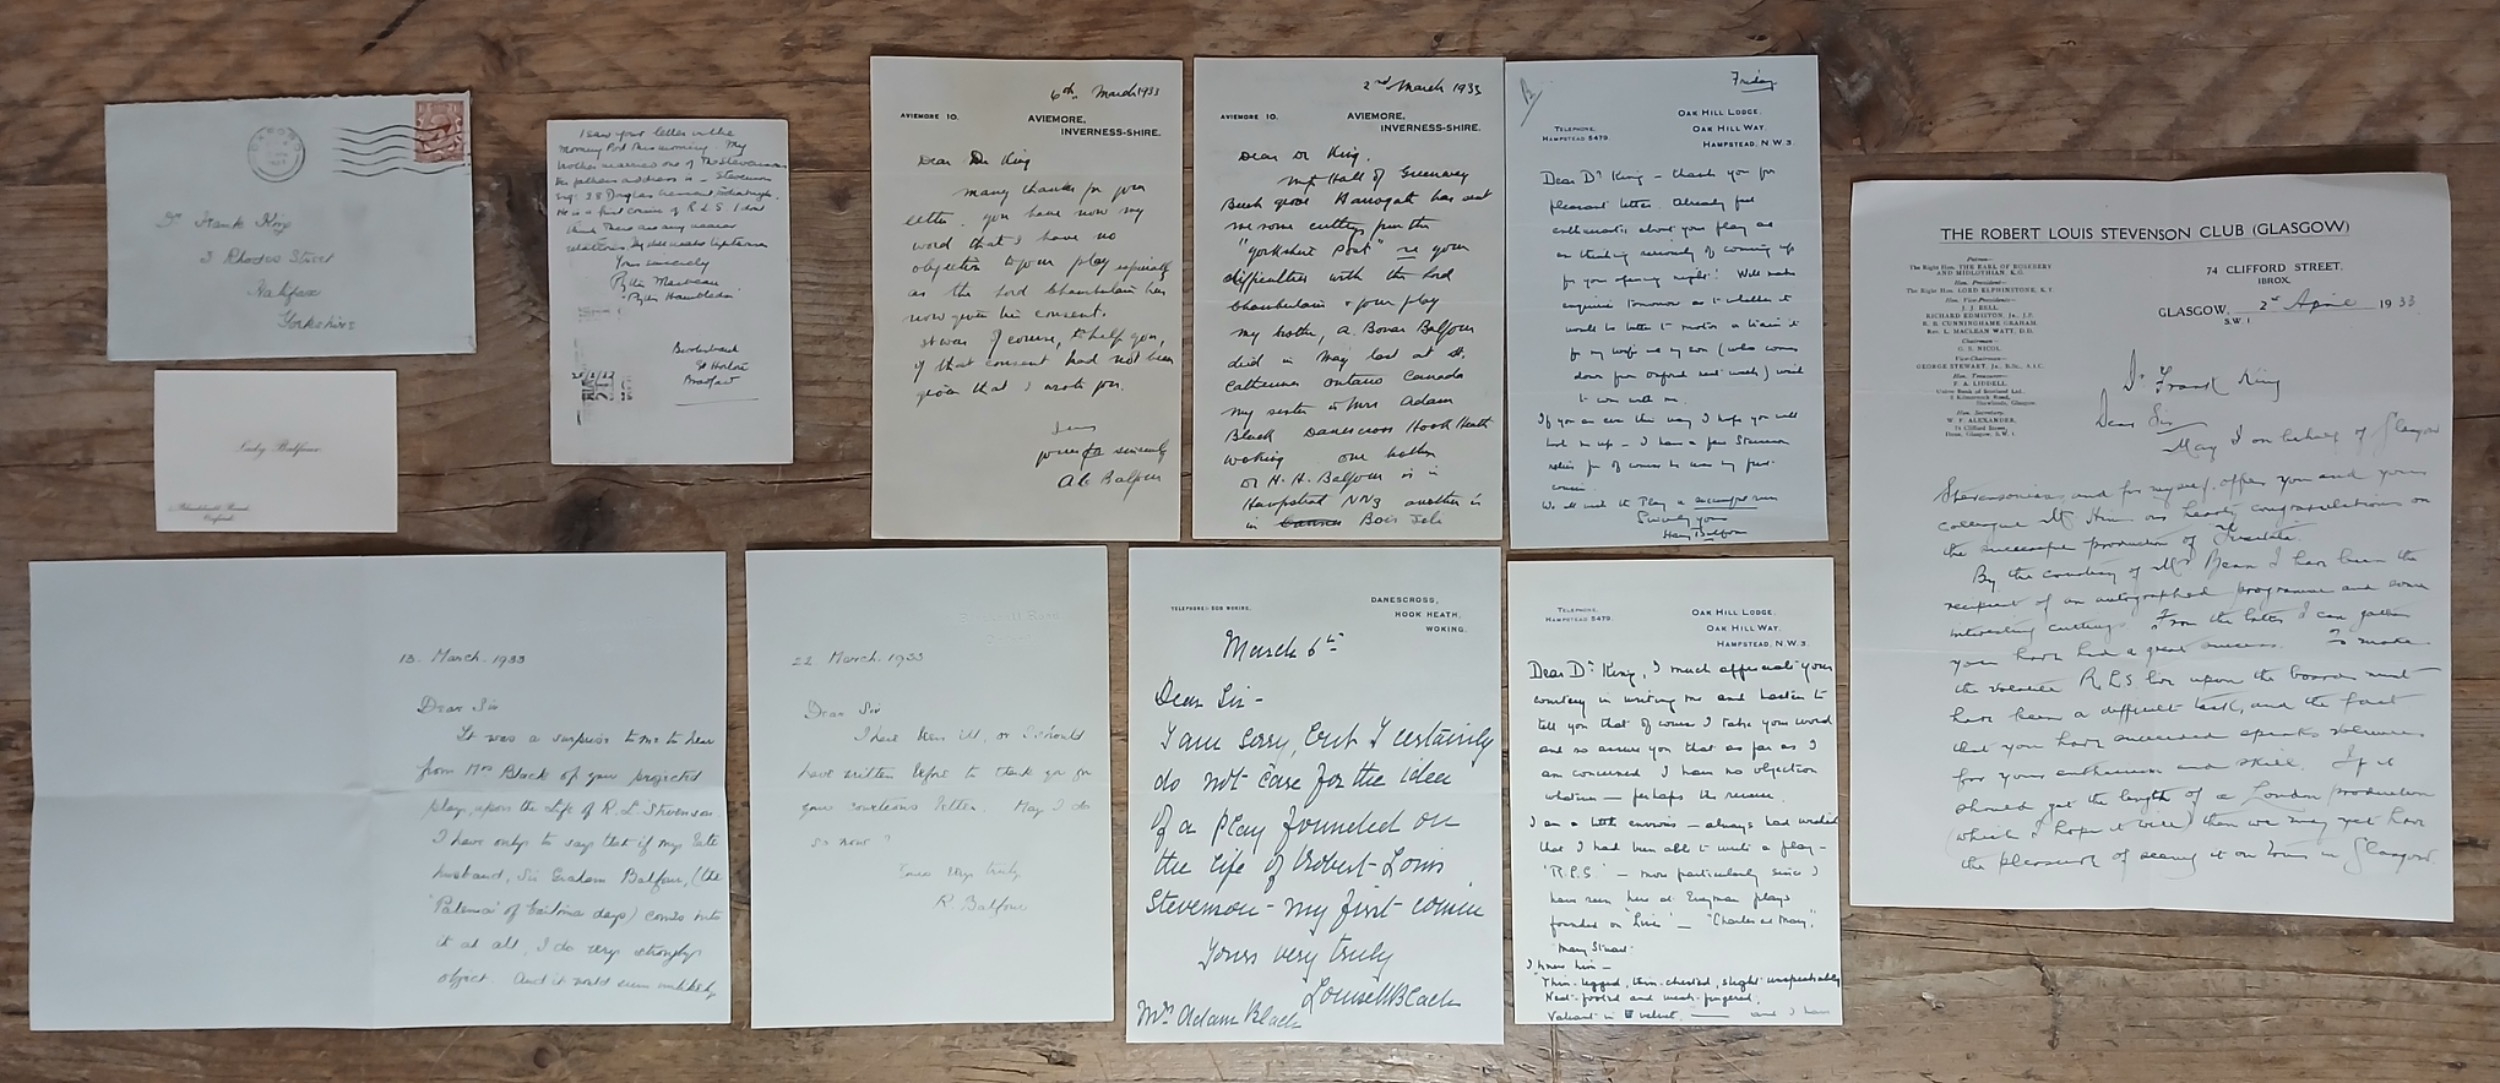 Dr Frank King
3 Rhodes Street
Halifax
Yorkshire
Lady Balfour
Oxford
I saw your letter in the
Morning Post this morning. My
brother married one of the Stevensons
her fathers address is – Stevenson
Esq. 38 Douglas Crescent Edinburgh.
He is a first cousin of R L S. I dont
think there are any nearer
relations.
Yours sincerely
Bradford
6th March 1933
AVIEMORE 10.
AVIEMORE,
INVERNESS-SHIRE.
Dear Dr King
many thanks for your
letter. you have now my
word that I have no
objection to your play especially
as the Lord Chamberlain has
now given his consent.
It was of course, to help you,
if that consent had not been
given that I wrote you.
yours sincerely
Balfour
2nd March 1933
AVIEMORE 10.
AVIEMORE,
INVERNESS-SHIRE.
Dear Dr King.
Hall of Greenway
Harrogate has sent
me some cuttings from the
"Yorkshire Post" re your
difficulties with the Lord
Chamberlain & your play
my brother, A. Bovar Balfour
died in May last at St.
Catherines Ontario Canada
my sister is Mrs Adam
Black Danescross Hook Heath
Woking one brother
Dr H. H. Balfour is in
Hampstead NW3 another is
in Cannes Bois
Friday
TELEPHONE,
HAMPSTEAD 5479.
OAK HILL LODGE,
OAK HILL WAY,
HAMPSTEAD, N.W.3.
Dear Dr King – thank you for
pleasant letter. Already feel
enthusiastic about your play and
am thinking seriously of coming up
for your opening night! Will make
enquiries tomorrow as to whether it
would be better to motor or train it
for my wife and my son (who comes
down from Oxford next week) would
to come with me.
If you are ever this way I hope you will
look me up – I have a few Stevenson
relics for of course he was my first
cousin.
We all wish the Play a
Sincerely yours
Balfour
THE ROBERT LOUIS STEVENSON CLUB (GLASGOW)
Patron—
The Right Hon. THE EARL OF ROSEBERY
AND MIDLOTHIAN, K.G.
Hon. President—
The Right Hon. LORD ELPHINSTONE, K.T.
Hon. Vice-Presidents—
J. J. BELL.
RICHARD EDMISTON, Jr., J.P.
R. B. CUNNINGHAME GRAHAM.
Rev. L. MACLEAN WATT, D.D.
Chairman—
G. S. NICOL.
Vice-Chairman—
GEORGE STEWART, Jr., B.Sc., A.I.C.
Hon. Treasurer—
F. A. LIDDELL,
Union Bank of Scotland Ltd.,
Shawlands, Glasgow.
Hon. Secretary,
W. F. ALEXANDER,
74 Clifford Street,
Ibrox, Glasgow, S.W.1.
74 CLIFFORD STREET,
IBROX,
GLASGOW, 2nd April 1933
S.W.1
Dr Frank King
Dear Sir
May I on behalf of Glasgow
Stevensonians and for myself, offer you and your
colleague Mr our hearty congratulations on
the successful production of
By the courtesy of Mr Bean I have been the
recipient of an autographed programme and some
interesting cuttings. From the latter I can gather
you have had a great success. To make
the versatile R.L.S. live upon the boards must
have been a difficult task, and the fact
that you have succeeded speaks volumes
for your enthusiasm and skill. If it
should get the length of a London production
(which I hope it will) then we may yet have
the pleasure of seeing it on tour in Glasgow
13. March. 1933
Dear Sir
It was a surprise to me to hear
from Mrs Black of your projected
play, upon the Life of R. L. Stevenson.
I have only to say that if my late
husband, Sir Graham Balfour, (the
'Palema' of Vailima days) comes into
it at all, I do very strongly
object. And it would seem unlikely
22 March. 1933
Dear Sir
I have been ill, or I should
have written before to thank you for
your courteous letter. May I do
so now?
Yours very truly
R. Balfour
TELEPHONE:- 508 WOKING.
DANESCROSS,
HOOK HEATH,
WOKING.
March 6th
Dear Sir –
I am sorry, but I certainly
do not care for the idea
of a play founded on
the life of Robert Louis
Stevenson – my first cousin
Yours very truly
Louise M Black
Mrs Adam Black
TELEPHONE,
HAMPSTEAD 5479.
OAK HILL LODGE,
OAK HILL WAY,
HAMPSTEAD, N.W.3.
Dear Dr King, I much appreciate your
courtesy in writing me and hasten to
tell you that of course I take your word
and so assure you that as far as I
am concerned I have no objection
whatever – perhaps the reverse.
I am a little envious – always had wished
that I had been able to write a play –
'R.L.S.' – more particularly since I
have seen here at Everyman plays
founded on 'Lives' – "Charles and Mary",
"Mary Stuart"
I knew him –
"Thin-legged, thin-chested, slight unspeakably
Neat-footed and weak-fingered,
Valiant in velvet, — and I have